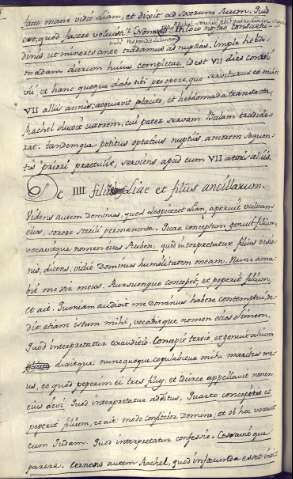 facto mane vidit Liam, et dixit ad socerum suum. Quid
est quod facere voluisti? Non est in loco nostro consuetu-
dinis ut minores ante tradamus ad nuptias. Imple hebdo-
madam dierum huius copulae et VII dies
et hanc quoque dabo tibi pro opere, quo serviturus es mihi
VII aliis annis. acquievit placito, et hebdomada transacta,
Rachel duxit uxorem, cui pater servam Balam tradide-
rat. tandemque potitus optatis nuptiis amorem sequen-
tis priori praetulit, serviens apud eum VII annis aliis.
De IIII filiis Liae et filiis ancillarum.
Videns autem Dominus, quod despiceret Liam, aperuit vulvam
eius, sorore sterili permanente. Quae conceptum genuit filium,
vocavitque nomen eius Ruben, quod interpretatur filius visio-
nis, dicens, vidit Dominus humilitatem meam. Nunc ama-
bit me vir meus. Rursumque concepit et peperit filium,
et ait. Quoniam audivit me Dominus haberi contemptui de-
dit etiam istum mihi, vocavitque nomen eius Simeon,
Quod interpretatur exauditio. Concepit tertio et genuit alium
dixitque nunc quoque copulabitur mihi maritus me-
us, eo quod pepererim ei tres filios et idcirco appellavit nomen
eius Levi. Quod interpretatur additus. Quarto concepit et
peperit filium, et ait modo confitebor Domino, et ob hoc vocavit
eum Judam. Quod interpretatur confessio. Cessavitque
parere. Cernens autem Rachel, quod infecunda esset